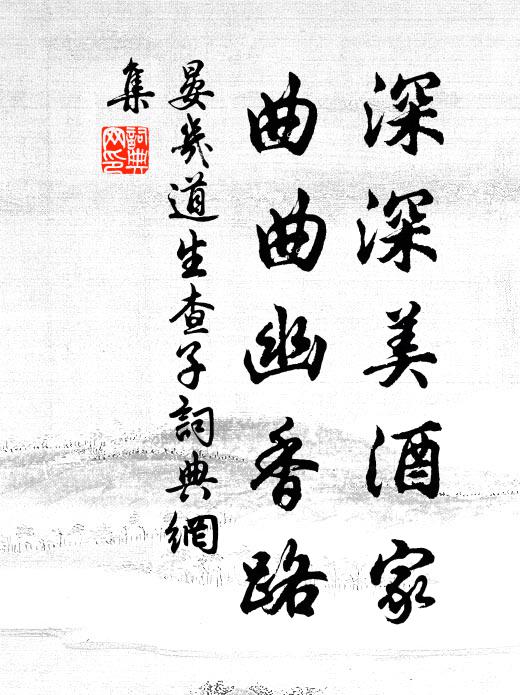 深深美酒家
曲曲幽香路
晏幾道生查子詞典網
集
詞典
网印